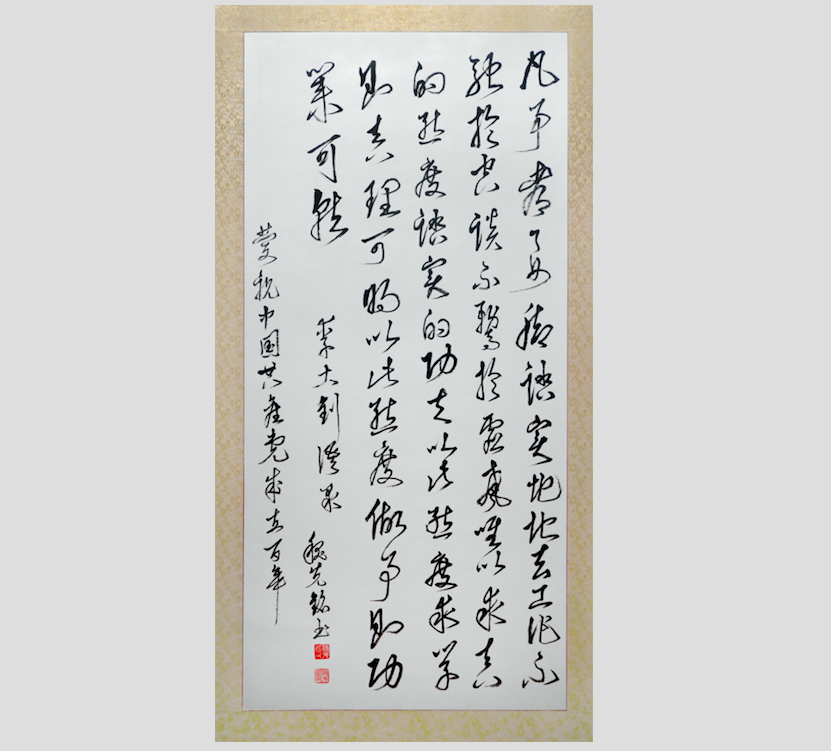 凡事都要脚踏实地地去工作不
驰於空谈不骛於虚声唯以求真
的态度踏实的功夫以此态度求学
则真理可明以此态度做事则功
業可就
李大钊语录 魏先铭书
庆祝中国共产党成立百年